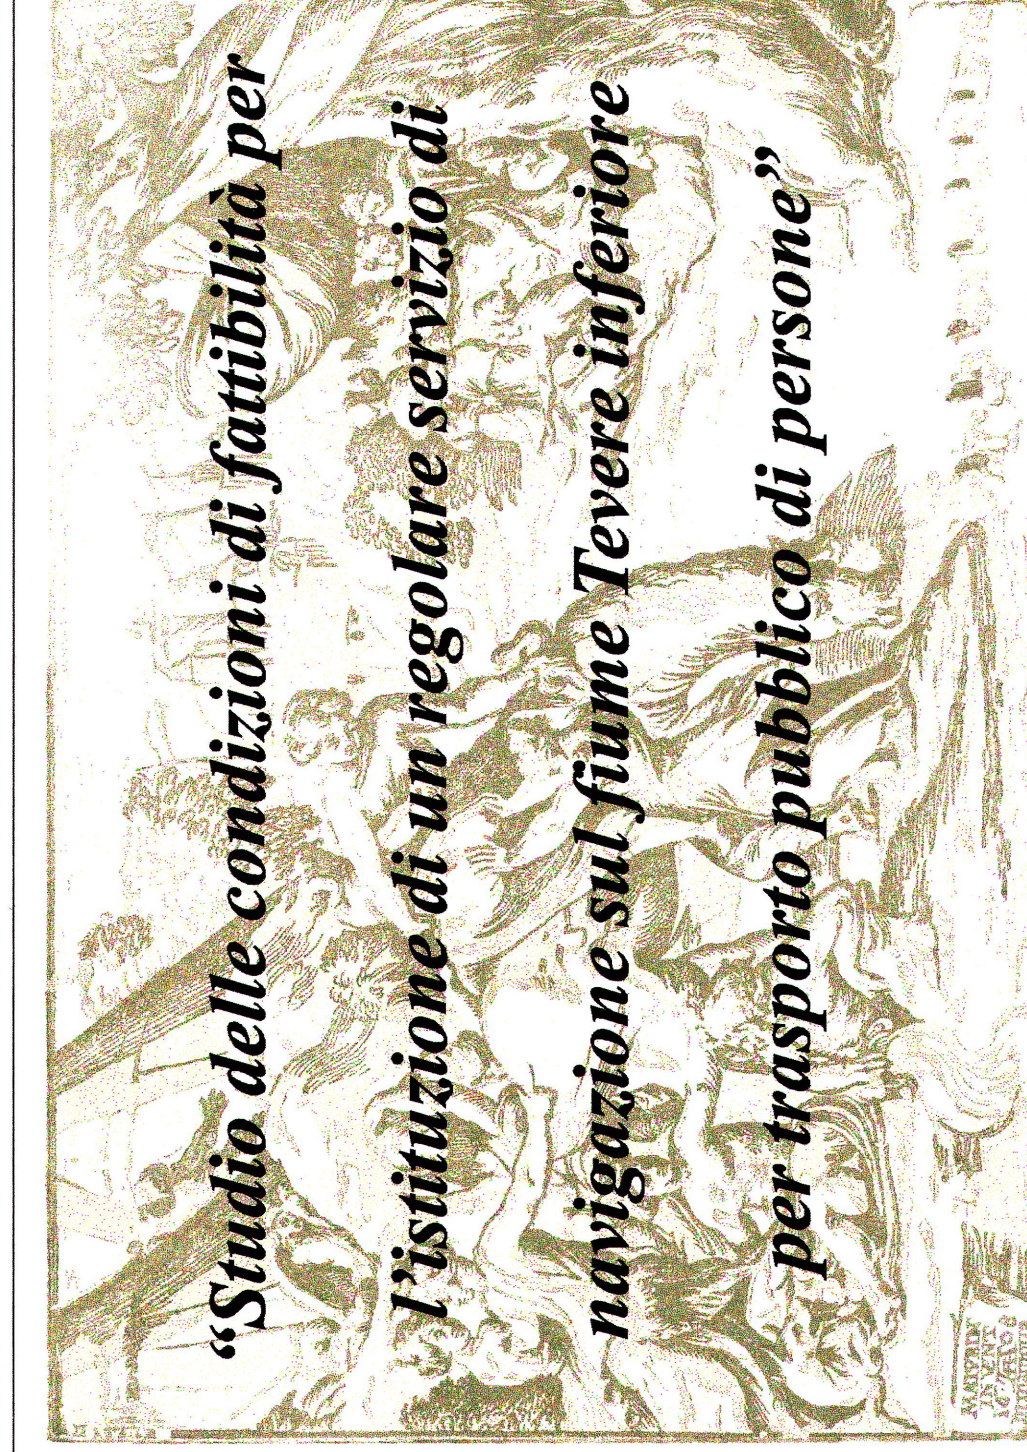 “Studio delle condizioni di fattibilità per
l’istituzione di un regolare servizio di
navigazione sul fiume Tevere inferiore
per trasporto pubblico di persone”
IN VENT